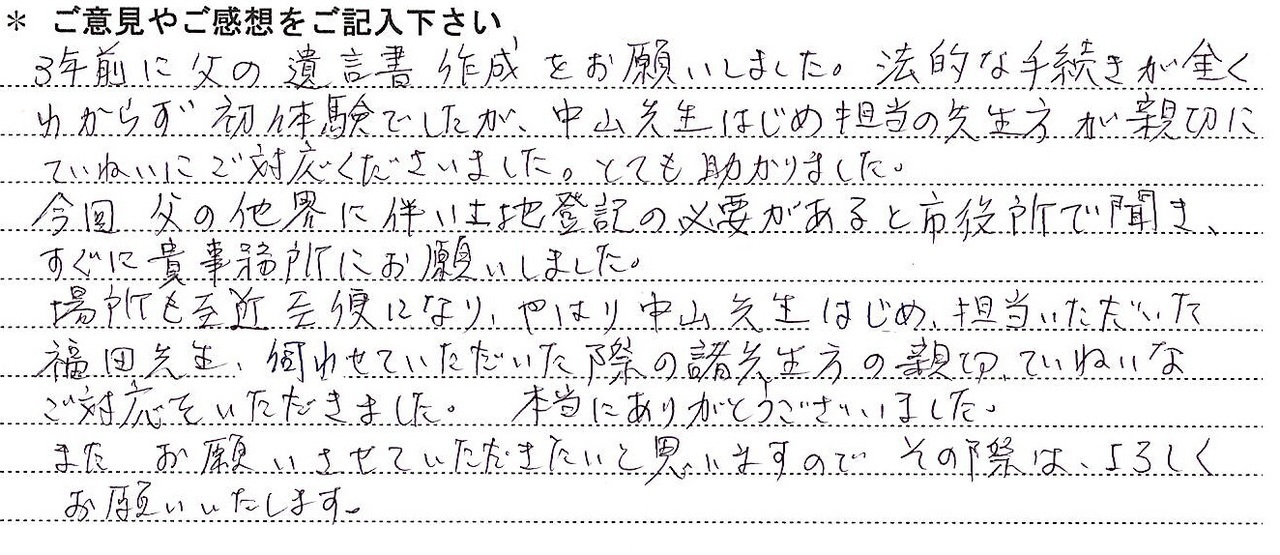 * ご意見やご感想をご記入下さい
3年前に父の遺言書作成をお願いしました。法的な手続きが全く
わからず初体験でしたが、中山先生はじめ担当の先生方が親切に
ていねいにご対応くださいました。とても助かりました。
今回父の他界に伴い土地登記の必要があると市役所で聞き、
すぐに貴事務所にお願いしました。
場所も至近至便になり、やはり中山先生はじめ、担当いただいた
福田先生、伺わせていただいた際の諸先生方の親切、ていねいな
ご対応をいただきました。 本当にありがとうございました。
また お願いさせていただきたいと思いますので その際は、よろしく
お願いいたします。